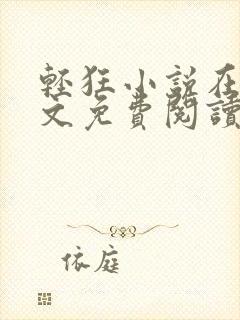 輕狂小說在
文免費閱讀
依庭